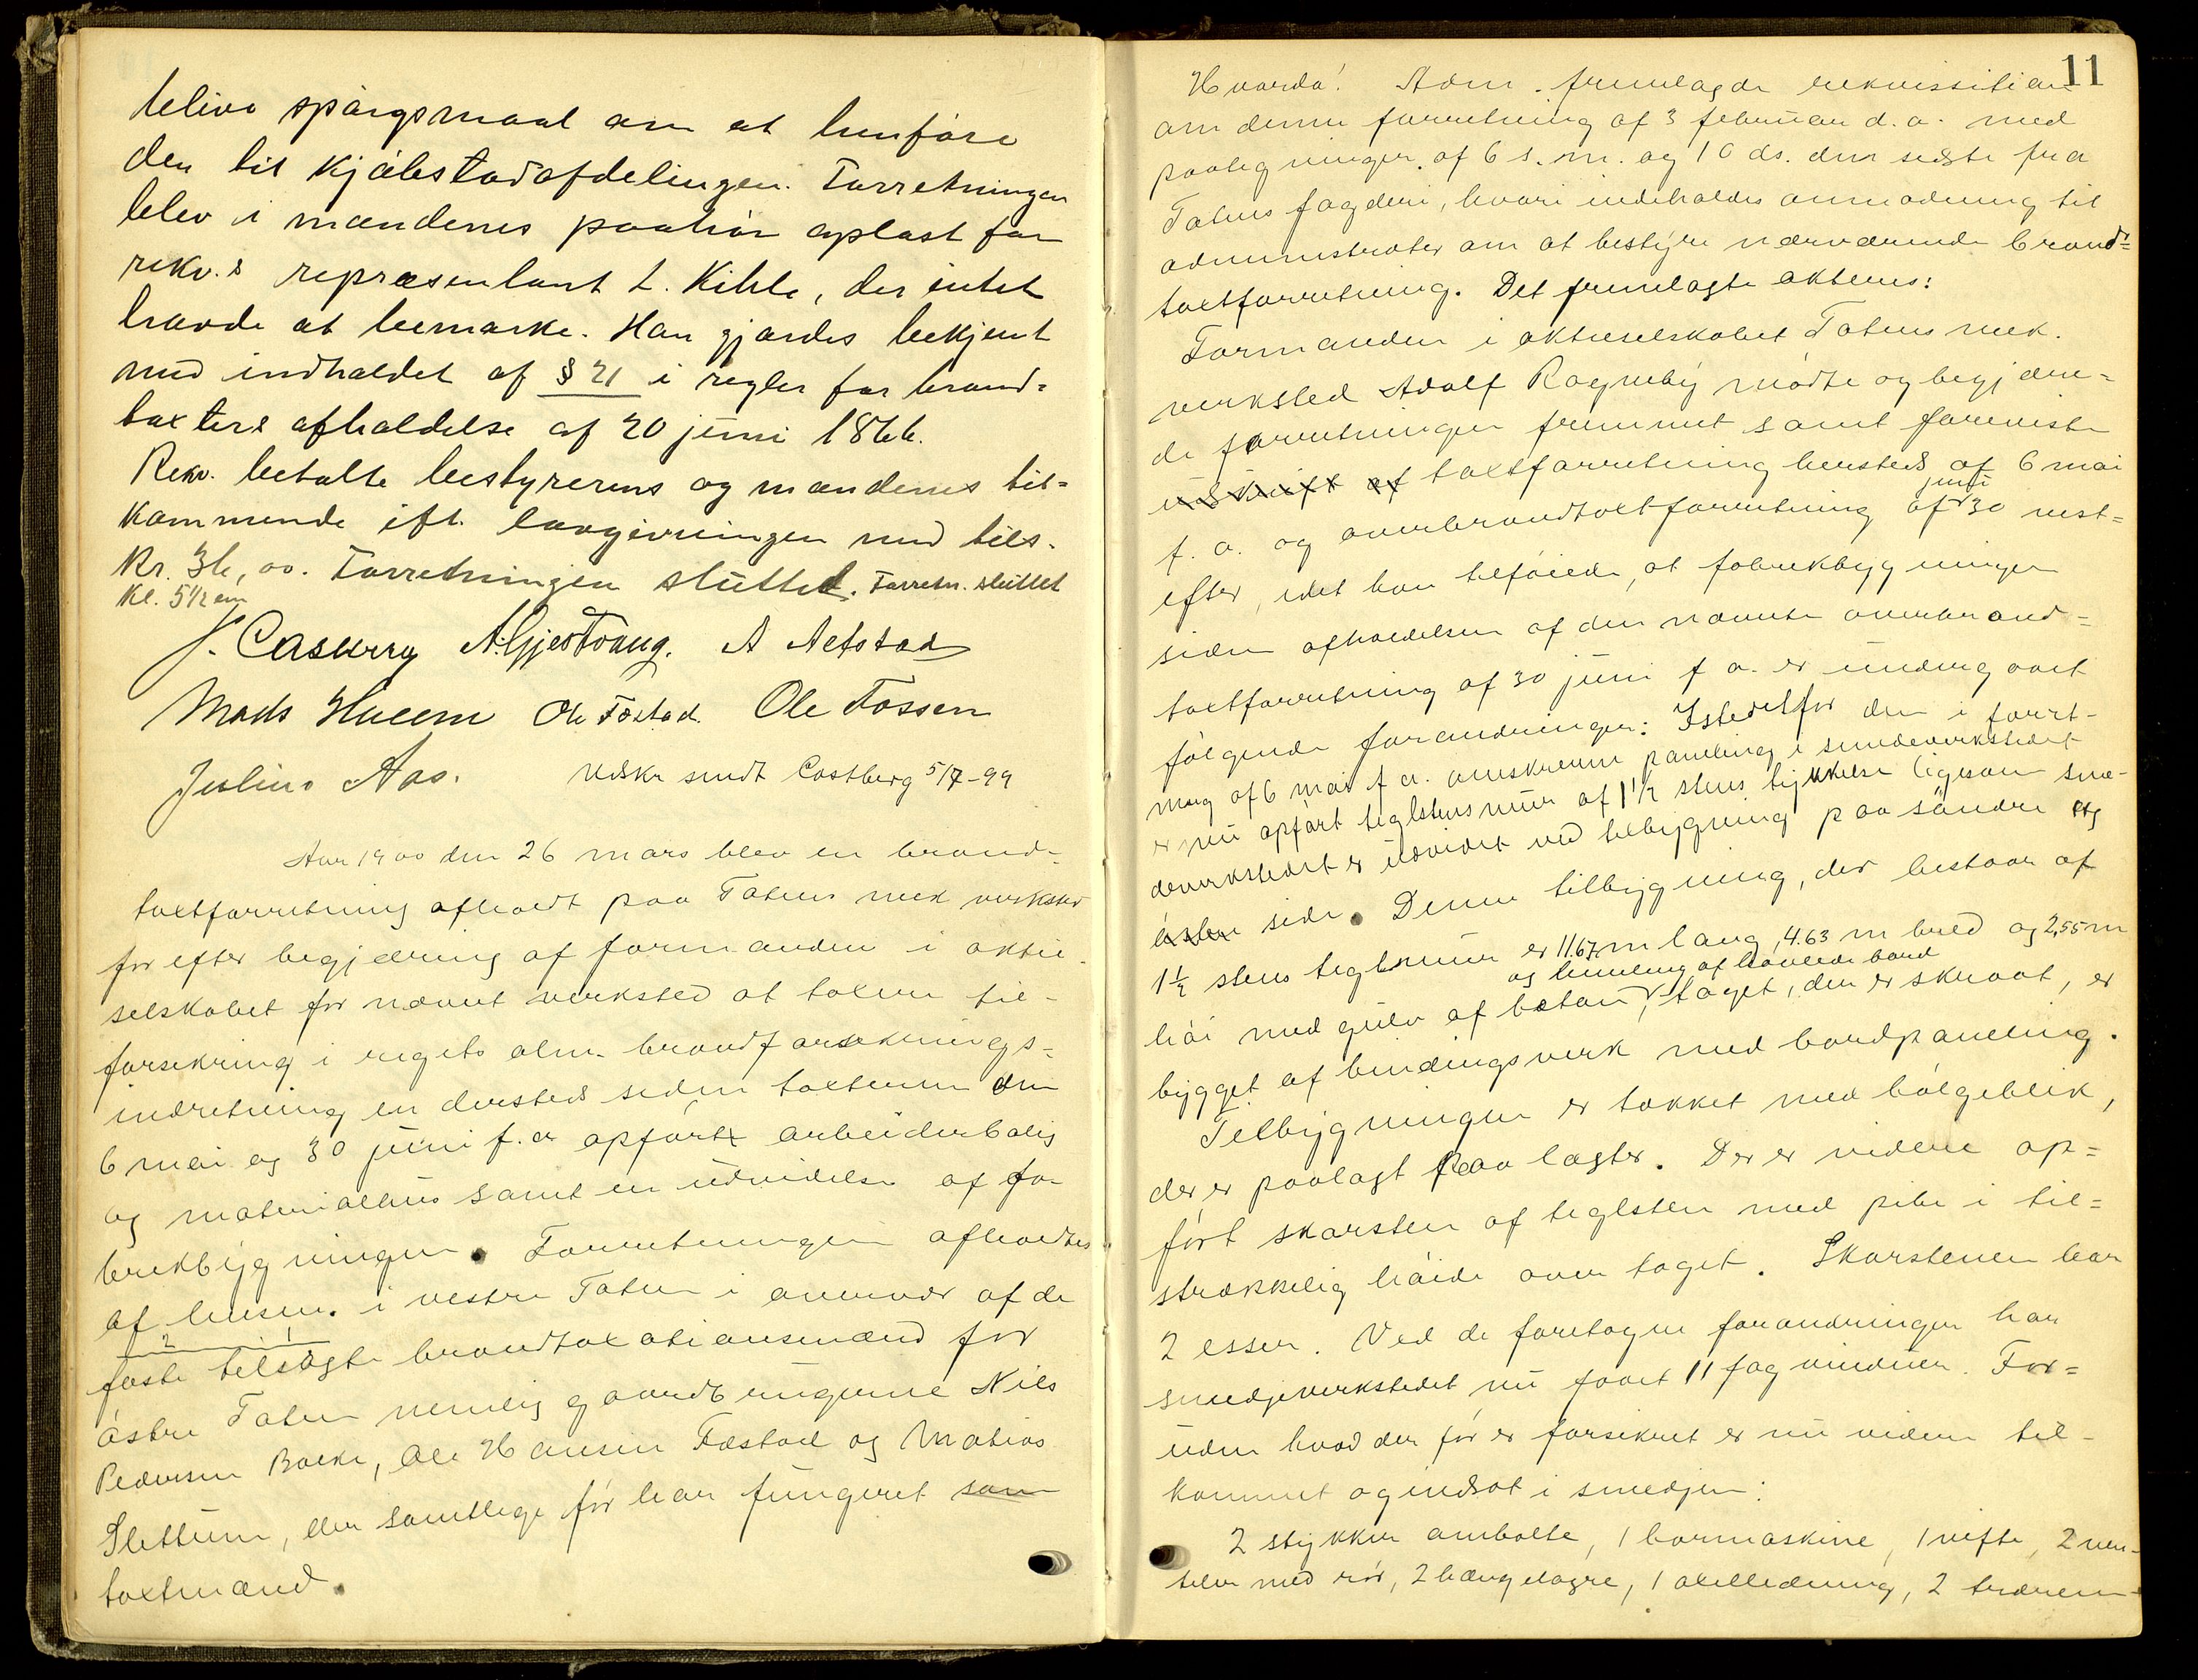 blive spørgsmaal om at henføre
den til Kjøbstadafdelingen. Forretningen
blev i mændenes paahør oplæst for
rekv.s repræsentant L. Kihle, der intet
havde at bemærke. Han gjordes bekjent
med indholdet af § 21 i regler for brand-
taxters afholdelse af 20 juni 1866.
Rekv. betalte bestyrerens og mændenes til-
kommende ift. lovgivningen med tils.
Kr. 36,00. Forretningen sluttet. Forretn. sluttet
Kl. 5½ em
J. Castberg A. Gjestvang. A Aefstad
Mads Hveem Ole Føstad. Ole Fossen
Julius Aas. Udskr sendt Castberg 5/7-99
Aar 1900 den 26 mars blev en brand-
taxtforretning afholdt paa Totens mek verksted
for efter begjæring af formanden i aktie-
selskabet for nævnt verksted at taxere til
forsikring i rigets alm. brandforsikrings-
indretning en dersteds siden taxterne den
6 mai og 30 juni f.a opført arbeiderbolig
og materialhus samt en udvidelse af fa-
brikbygningen. Forretningen afholdtes
af lensm. i vestre Toten i overvær af de
2 1
faste tilsagte brandtaxationsmænd for
østre Toten nemlig gaardbrugerne Nils
Pedersen Bakke, Ole Hansen Fæstad og Matias
Slettum, der samtlige før har fungeret som
taxtmænd.
11
Hvorda! Adm. fremlagde rekvisition
om denne forretning af 3 februar d.a. med
paategninger af 6 s.m. og 10 ds. den sidste fra
Totens fogderi, hvori indeholdes anmodning til
administrator om at bestyre nærværende brand-
taxtforretning. Det fremlagte akteres:
Formanden i aktieselskabet Totens mek.
verksted Adolf Rogneby mødte og begjære-
de forretningen fremmet samt foreviste
udskrift af taxtforretning hersteds af 6 mai
juni
f.a. og overbrandtaxtforretning af 30 næst-
efter, idet han tilføiede, at fabrikbygningen
siden afholdelsen af den nævnte overbrand-
taxtforretning af 30 juni f a. er undergaaet
følgende forandringer: Istedetfor den i forret-
ning af 6 mai f a. omskrevne paneling i smedeverkstedet
er nu opført teglstensmur af 1½ stens tykkelse ligesom sme-
deverkstedet er udvidet ved tilbygning paa søndre og
østre side. Denne tilbygning, der bestaar af
1½ stens teglmur er 11.67 m lang, 4.63 m bred og 2,55 m
og himling af høvlede bord
høi med gulv af beton, taget, der er skraat, er
bygget af bindingsverk med bordpaneling.
Tilbygningen er tækket med bølgeblik,
der er paalagt paa lægter. Der er videre op-
ført skorsten af teglsten med pibe i til-
strækkelig høide over taget. Skorstenen har
2 esser. Ved de foretagne forandringer har
smedjeverkstedet nu faaet 11 fag vinduer. For-
uden hvad der før er forsikret er nu videre til-
kommet og indsat i smedjen:
2 stykker ambolte, 1 bormaskine, 1 vifte, 2 ven-
tiler med rør, 2 hængelagre, 1 axelledning, 2